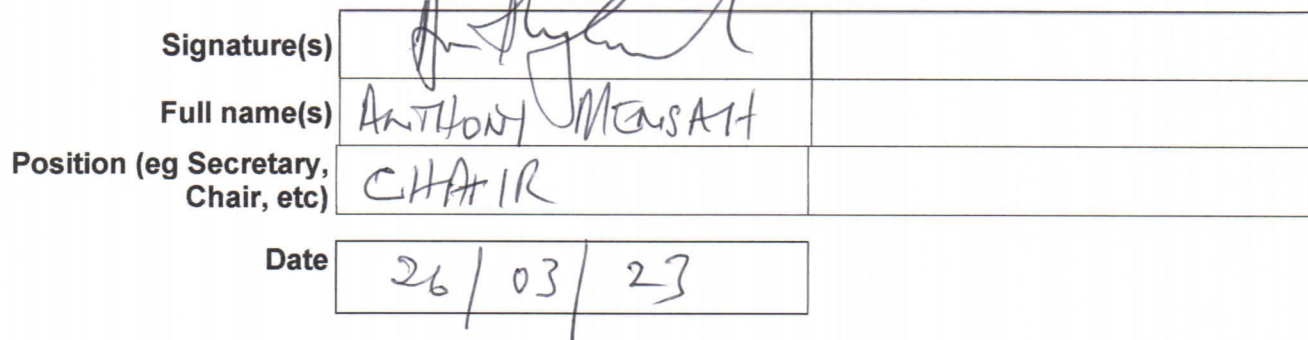 Signature(s)
Full name(s) ANTHONY MENSAH
Position (eg Secretary,
Chair, etc) CHAIR
Date 26/03/23